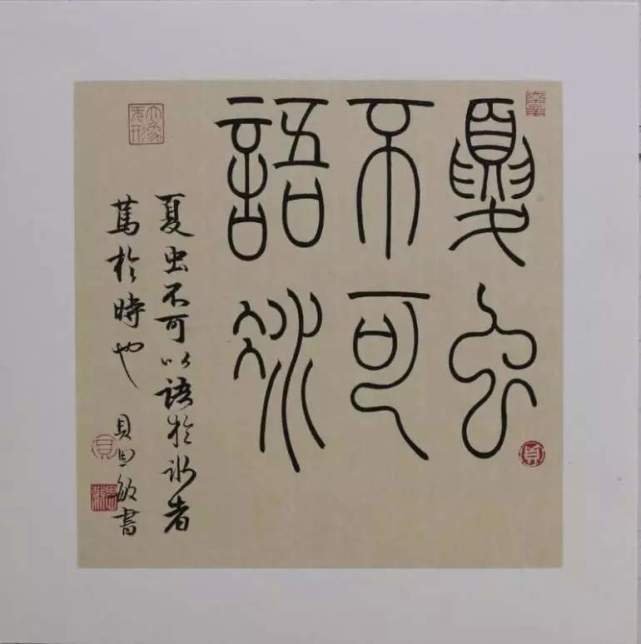 夏虫
不可
語冰
夏虫不可以語於冰者
篤於時也
貝敏書
大象无形